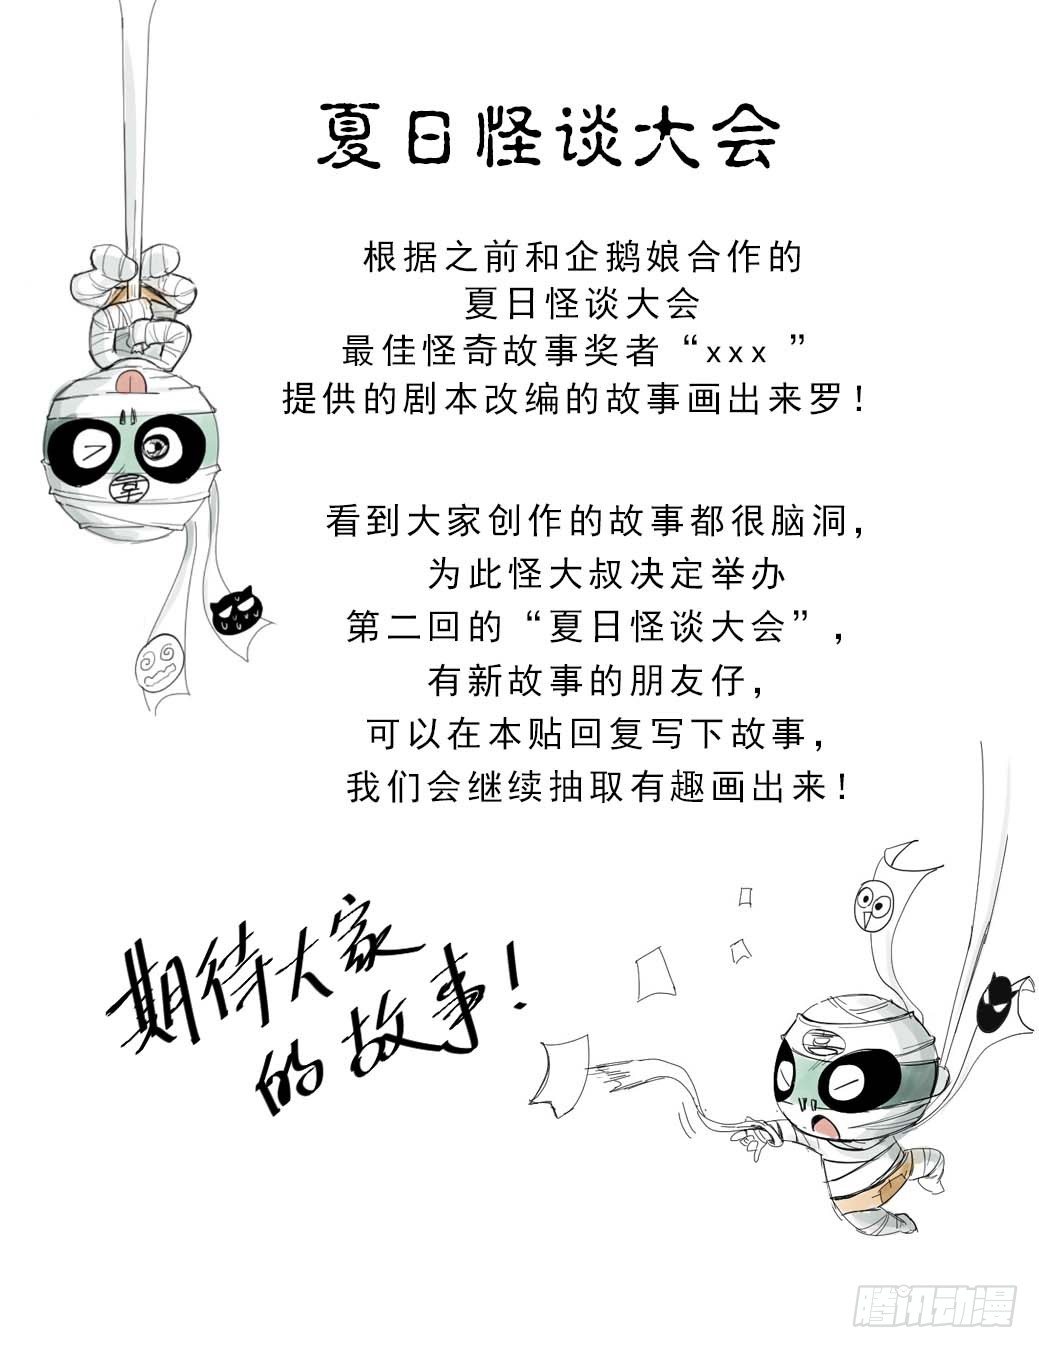 夏日怪谈大会
根据之前和企鹅娘合作的
夏日怪谈大会
最佳怪奇故事奖者“xxx ”
提供的剧本改编的故事画出来罗！
看到大家创作的故事都很脑洞，
为此怪大叔决定举办
第二回的“夏日怪谈大会”，
有新故事的朋友仔，
可以在本贴回复写下故事，
我们会继续抽取有趣画出来！
期待大家
的故事！
腾讯动漫